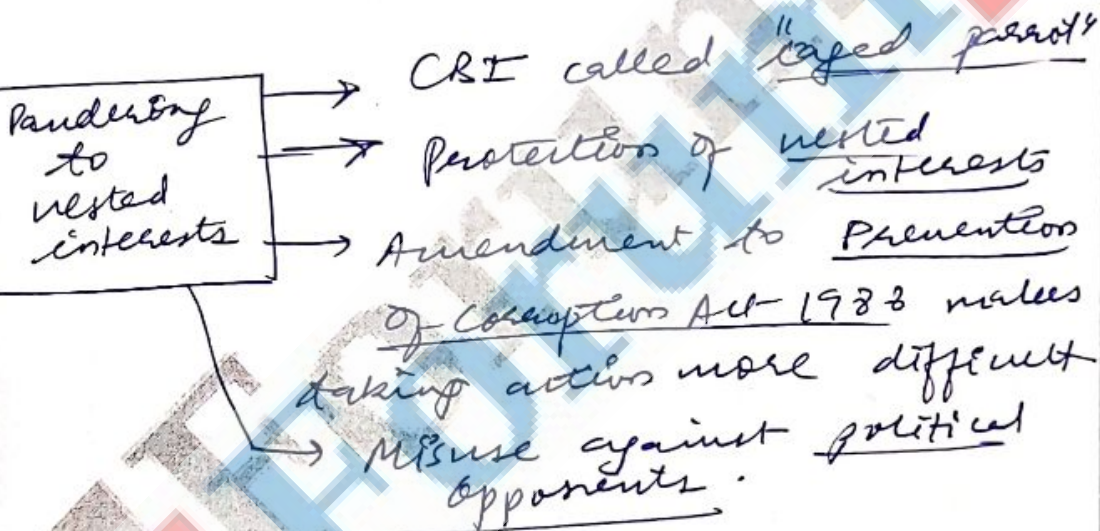 Pandering
to
vested
interests
CBI called "caged parrot"
Protection of vested
interests
Amendment to Prevention
of Corruption Act 1988 makes
taking action more difficult
Misuse against political
opponents.
Forum